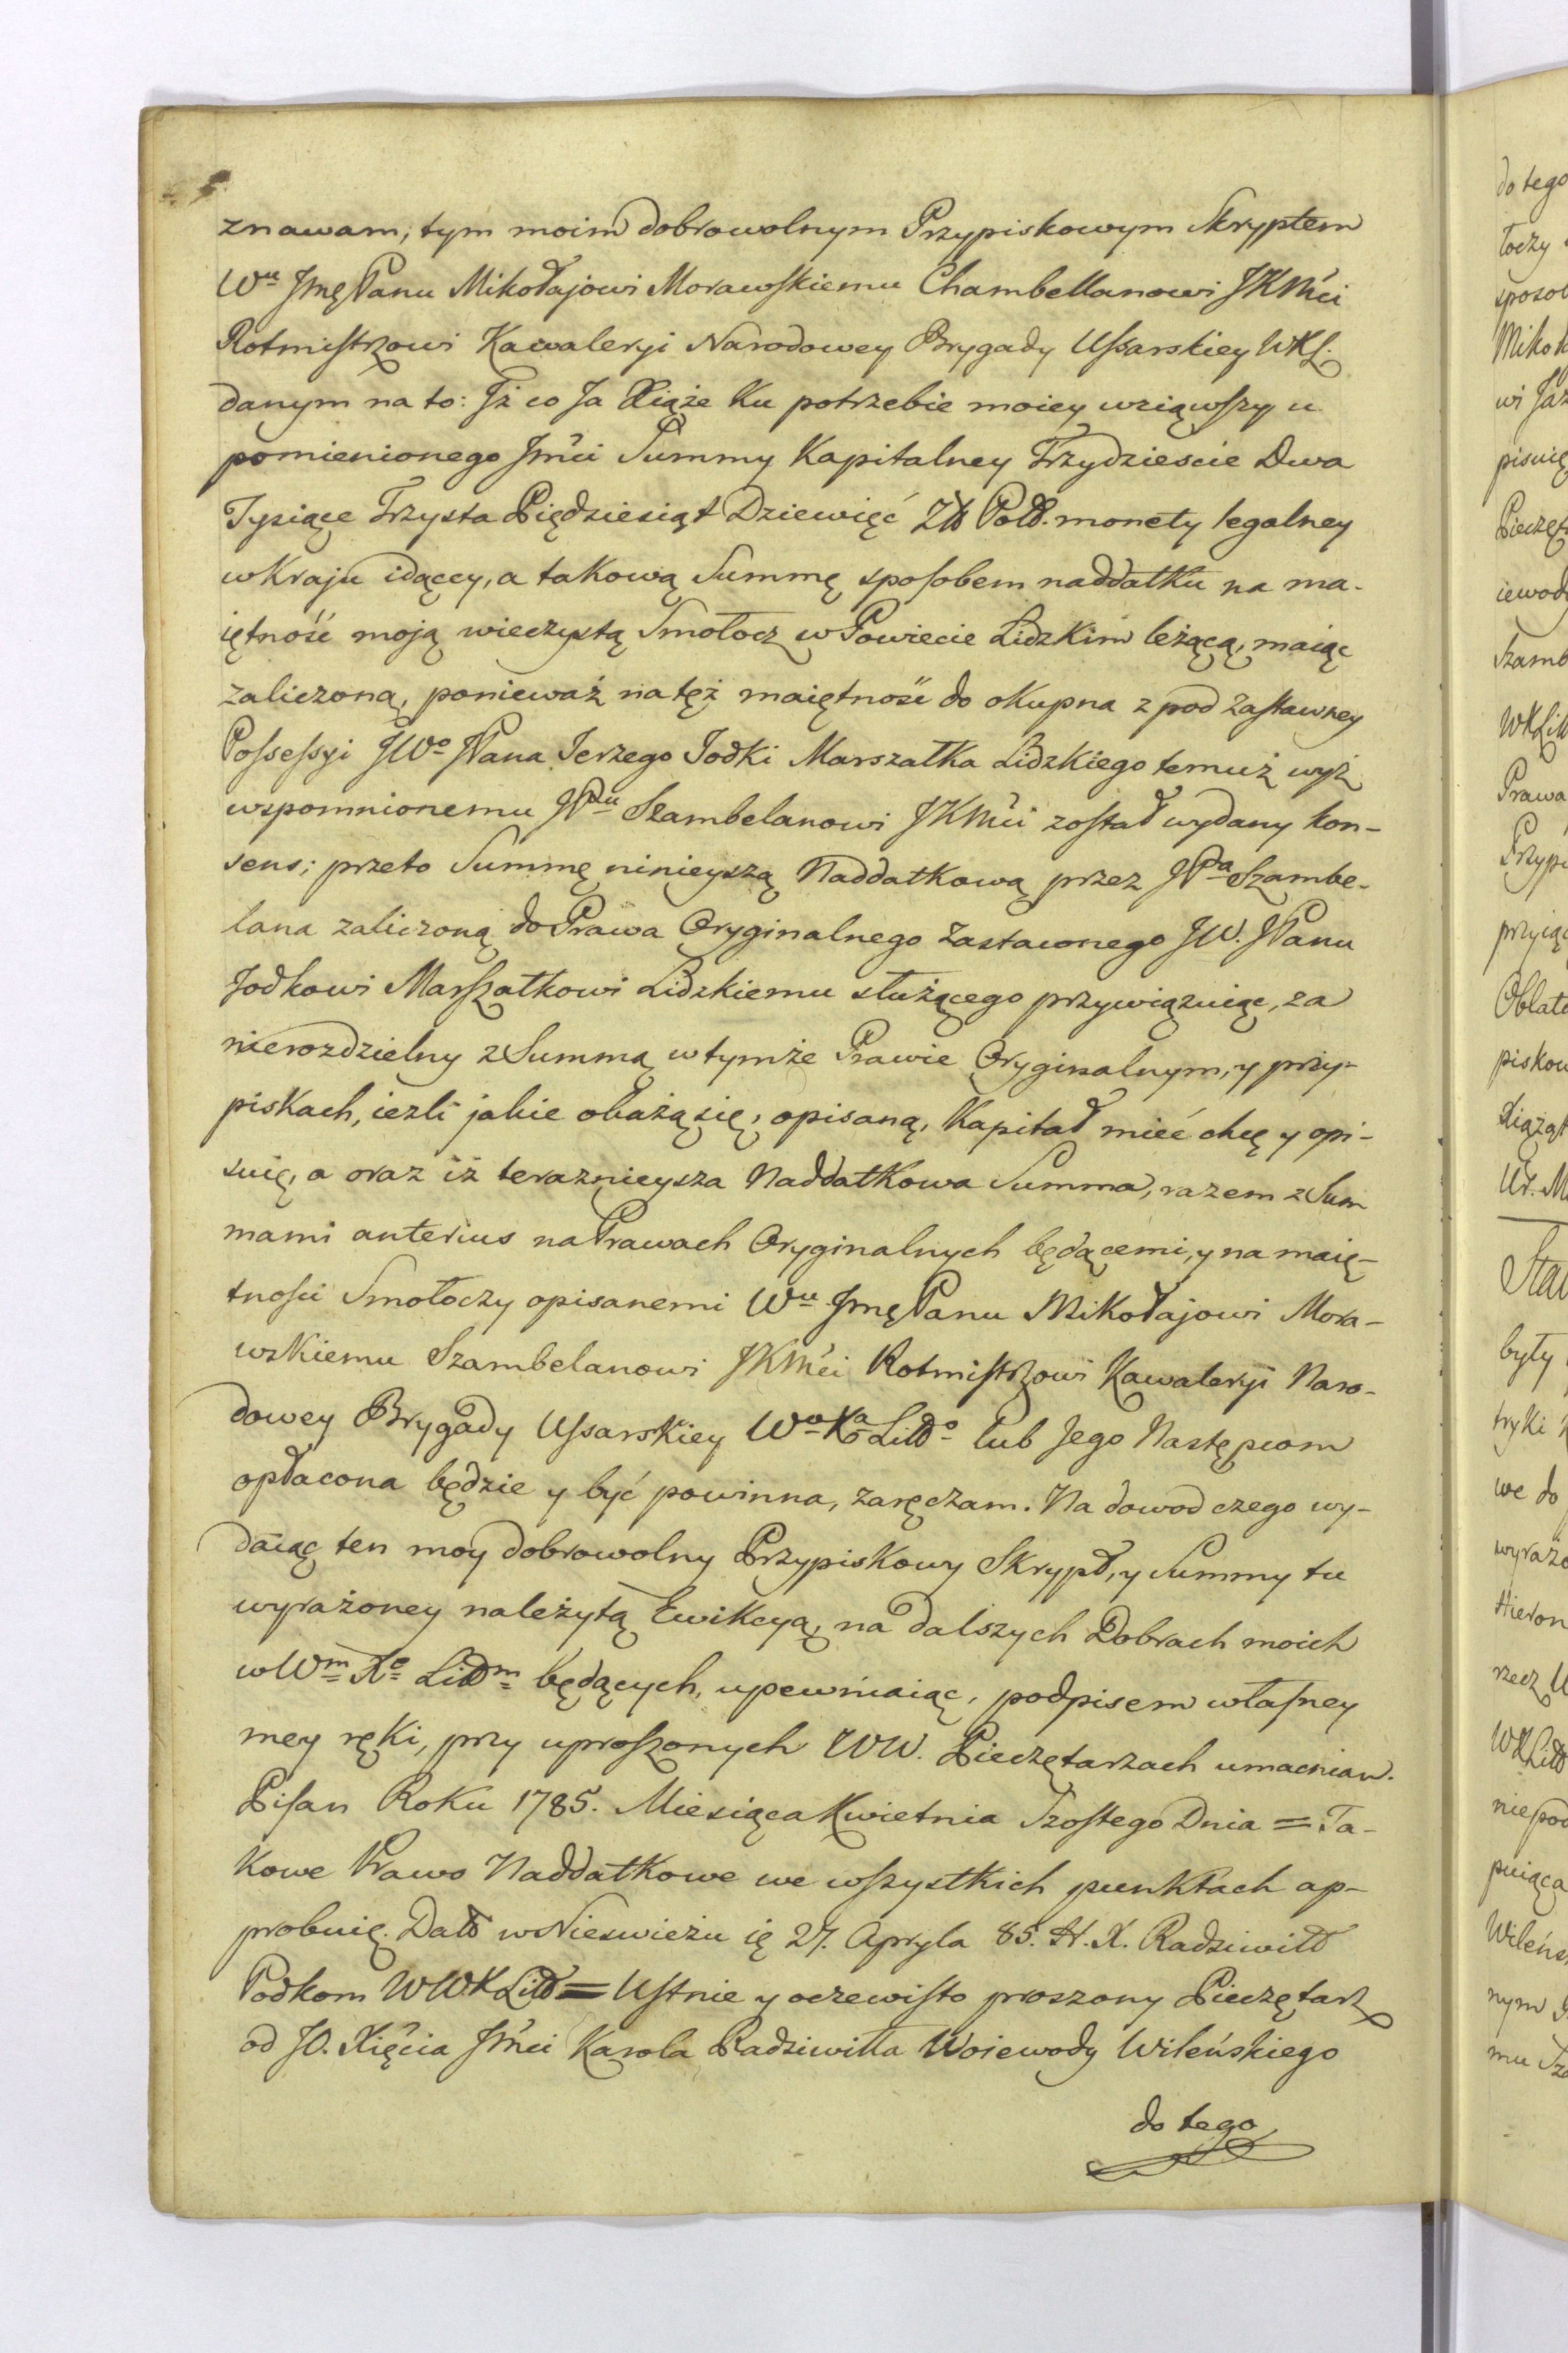 znawam, tym moim dobrowolnym Przypiskowym Skryptem
Wu JmęPanu Mikołajowi Morawskiemu Chambellanowi JKMći
Rotmistrzowi Kawaleryi Narodowey Brygady Ussarskiey WKL.
danym na to: Jż co Ja Xiąże Ku potrzebie moiey wziąwszy u
pomienionego Jmći Summy Kapitalney Trzydzieście Dwa
Tysiące Trzysta Pięćdziesiąt Dziewięć Złł Poll. monety legalney
w Kraju idącey, a takową Summę sposobem naddatku na ma-
iętność moją wieczystą Smołocz w Powiecie Lidzkim leżącą, maiąc
zaliczoną, ponieważ na tęż maiętność do okupna z pod Zastawney
Possessyi JWo JPana Jerzego Jodki Marszałka Lidzkiego temuż wyż
wspomnionemu JPu Szambelanowi JKMći został wydany kon-
sens; przeto Summę ninieyszą Naddatkową przez JPa Szambe-
lana zaliczoną do Prawa Oryginalnego Zastawnego JW. JPanu
Jodkowi Marszałkowi Lidzkiemu służącego przywiązuiąc, za
nierozdzielny z Summą w tymże Prawie Oryginalnym, y przy-
piskach, ieżli jakie okażą się, opisaną, Kapitał mieć chcę y opi-
suię, a oraz iż teraznieysza Naddatkowa Summa, razem z Sum
mami anterius na Prawach Oryginalnych będącemi, y na maię-
tności Smołoczy opisanemi Wu JmęPanu Mikołajowi Mora-
wskiemu Szambelanowi JKMći Rotmistrzowi Kawaleryi Naro-
dowey Brygady Ussarskiey Wo Xa Litto lub Jego Następcom
opłacona będzie y być powinna, zaręczam. Na dowod czego wy-
daiąc ten moy dobrowolny Przypiskowy Skrypt, y Summy tu
wyrażoney należytą Ewikcyą, na dalszych Dobrach moich
w Wm Xe Littm będących, upewniaiąc, podpisem własney
mey ręki, przy uproszonych WW. Pieczętarzach umacniam.
Pisan Roku 1785. Miesiąca Kwietnia Szostego Dnia = Ta-
kowe Prawo Naddatkowe we wszystkich punktach ap-
probuię. Datt w Nieswieżu 27. Apryla 85. H. X. Radziwiłł
Podkom WWXLitt = Ustnie y oczewisto proszony Pieczętarz
od JO. Xięcia Jmći Karola Radziwiłła Woiewody Wileńskiego
do tego